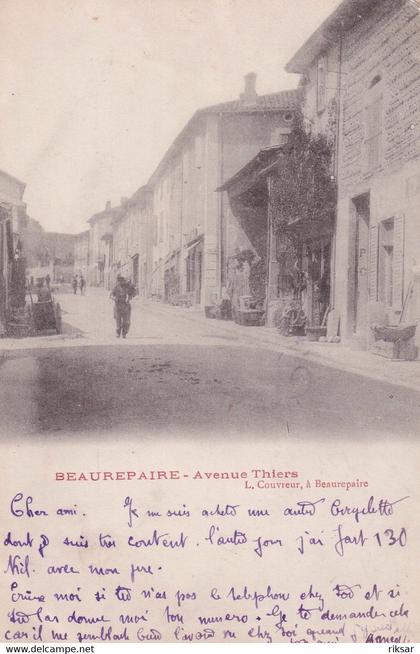 BEAUREPAIRE - Avenue Thiers
L. Couvreur, à Beaurepaire
Cher ami. Je me suis acheté une autre Bicyclette
dont je suis très content. l'autre jour j'ai fait 130
Kil. avec mon père.
Ecris moi si tu n'as pas le telephone chez toi et si
tu l'as donne moi ton numero. Je te demanderai
car il me semblait bien l'avoir vu chez toi quand
delcampe.net
riksar